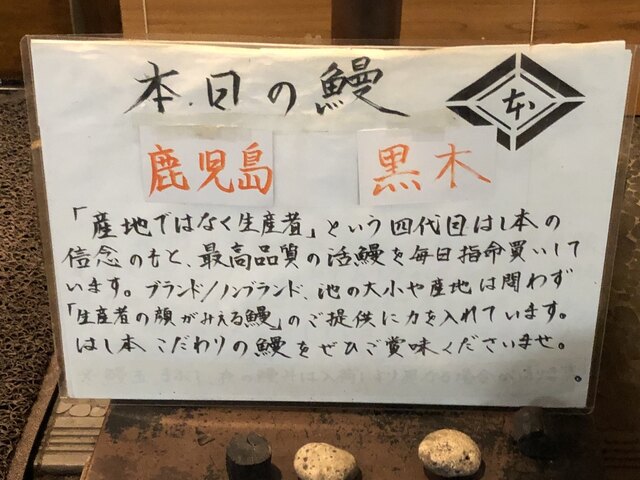 本日の鰻
本
鹿児島 黒木
「産地ではなく生産者」という四代目はし本の
信念のもと、最高品質の活鰻を毎日指命買いして
います。ブランド/ノンブランド、池の大小や産地は問わず
「生産者の顔がみえる鰻」のご提供に力を入れています。
はし本こだわりの鰻をぜひご賞味くださいませ。